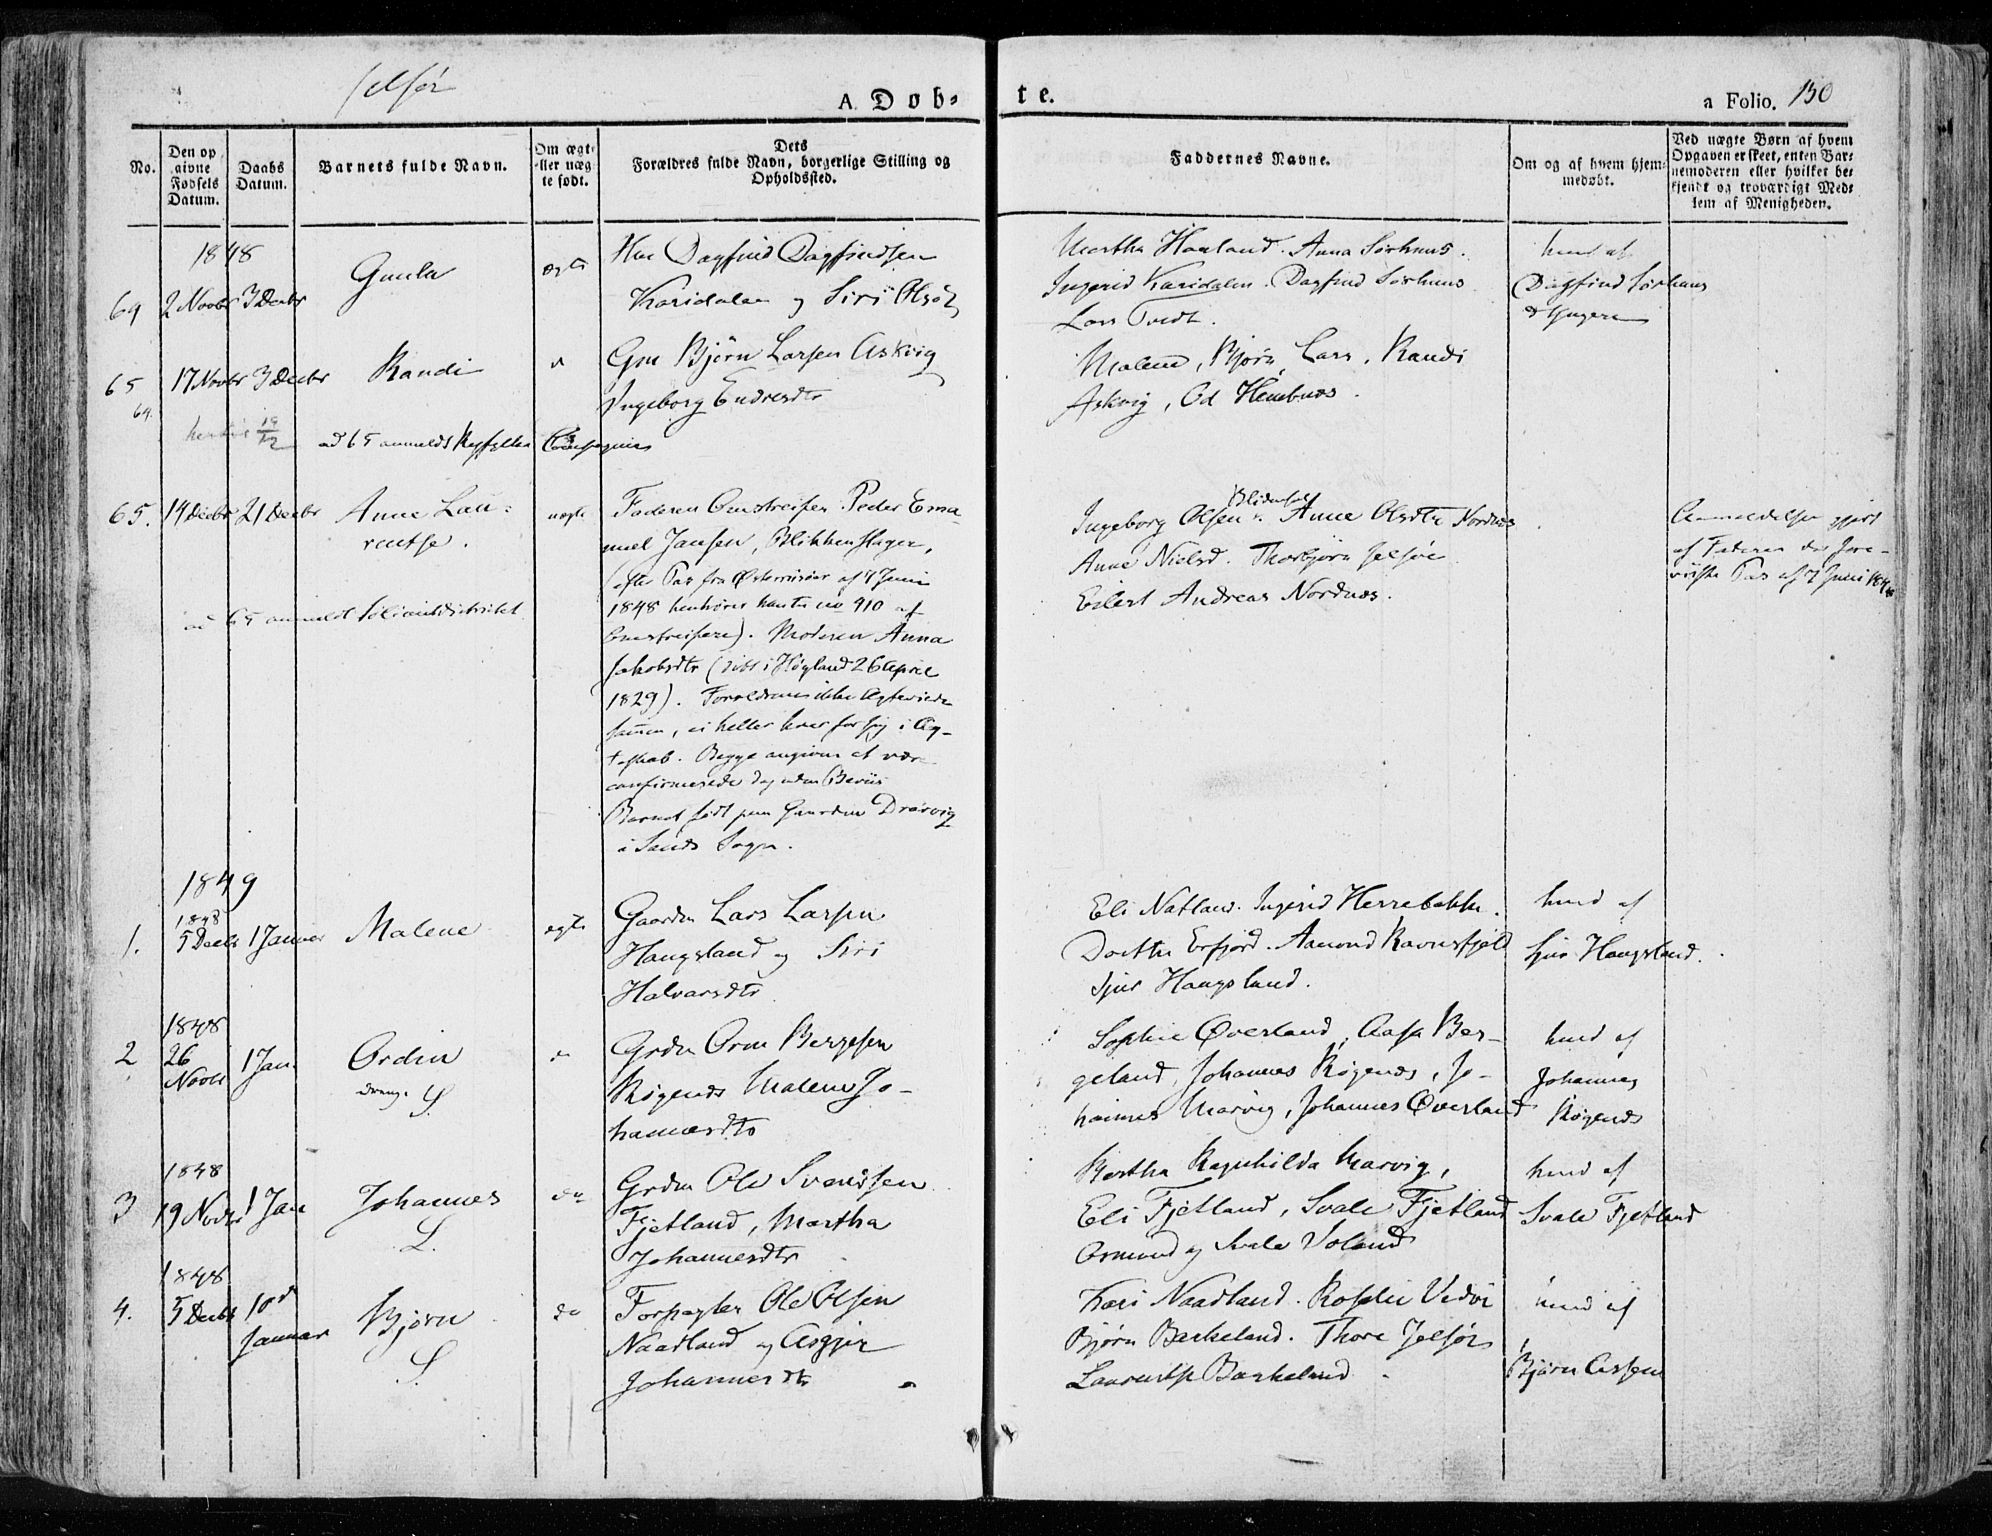 Jelsør
A. Døb-
te.
a Folio. 130
No.
Den op
givne
Fødsels
Datum.
Daabs
Datum.
Barnets fulde Navn.
Om ægt-
eller uæg
te født.
Dets
Forældres fulde Navn, borgerlige Stilling og
Opholdssted.
Faddernes Navne.
Om og af hvem hjem-
medøbt.
Ved uægte Børn af hvem
Opgaven er skeet, enten Bar-
nemoderen eller hvilket be-
kjendt og troværdigt Med-
lem af Menigheden.
1848
69 2 Novbr 3 Decbr
Gunla
ægte
Dagfind Dagfindsen
Karidalen og Siri Olsdt
Martha Haaland. Anna Sørhuus.
Ingerid Karidalen. Dagfind Sørhuus
Lars Tvedt.
hmd af
Dagfind Sørhuus
65 17 Novbr 3 Decbr
64.
Randi
Gm Bjørn Larsen Askvig
Ingeborg Endresdtr
Malene, Bjørn, Lars, Randi
Askvig, Od Hembnæs.
19/12 ad 65 anmeldt Ryfylke Compagnie
65. 14 Decbr 21 Decbr
Anne Lau-
rentse.
uægte
Faderen Omstreifer Peder Ema-
nuel Jansen, Blikkenslager,
(efter Pas fra Østerriisøer af 7 Juni
1848 henhører han til no 910 af
Omstreifere). Moderen Anna
Jakobsdtr (døbt i Høgland 26 April
1829). Forældrene ikke Ægteviede
sammen, ei heller hver for sig i Æg-
teskab. Begge angiver at være
confirmerede dog uden Beviis
Barnet født paa Gaarden Drarvig
i Sands Sogn.
ad 65 anmeldt
Ingeborg Olsen. Anne Olsdtr Nordnæs
Anne Nielsd. Thorbjørn Jelsøe
Eilert Andreas Nordnæs.
Anmeldelsen gjort
af Faderen der fore-
viiste Pas af 7 Juni 1848
1849
1. 1848
5 Decbr 1 Januar
Malene
ægte
Gaardm Lars Larsen
Haugsland og Siri
Halvarsdtr
Eli Natland. Ingerid Herrebakke.
Dorthe Erfjord. Aamund Ravnsfjeld
Sjur Haugsland.
hmd af
Sjur Haugsland.
2 1848
26
Novbr 1 Jan.
Ordin
dreng. S
do
Grdm Orm Bergesen
Røgenæs Malene Jo-
hannesdtr
Sophie Øverland, Aasa Ber-
geland, Johannes Røgenæs, Jo-
hannes Marvig, Johannes Øverland
hmd af
Johannes
Røgenæs
3 1848
19 Novbr 1 Jan
Johannes
S.
do
Grdm Ole Svendsen
Fjetland, Martha
Johannesdtr
Bertha Ragnhilda Marvig,
Eli Fjetland, Svale Fjetland
Osmund og Svale Voland
hmd af
Svale Fjetland
4. 1848
5 Decbr 10d
Januar
Bjørn
S.
do
Forpagter Ole Olsen
Naadland og Asgjer
Johannesdtr
Kari Naadland. Rosilie Vedøe
Bjørn Barkeland. Thore Jelsør
Lauritse Barkeland
hmd af
Bjørn